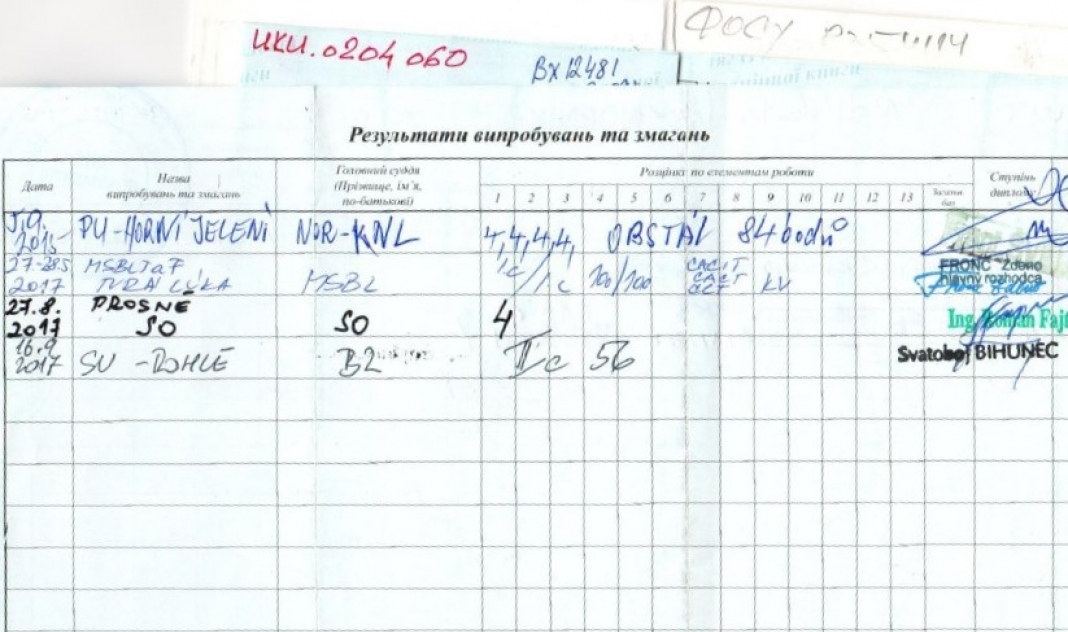 ИКU.0204060
ВХ12481
ФОСУ
Результати випробувань та змагань
Дата
Назва випробувань та змагань
Головний суддя (Прізвище, ім'я, по-батькові)
Розцінка по елементам роботи
1 2 3 4 5 6 7 8 9 10 11 12 13
Ступінь диплому
5.9. 2015 PU-HORNÍ JELENÍ NOR-KNL 4,4,4,4, OBSTÁL 84 bodů
2017 TURÁ LÚKA MSBL Ic/Ic 100/100 CACIT CACT KV
FRONC Zdeno
hlavný rozhodca
27.8. 2017 PROSNÉ SO SO 4
Ing. Roman Fajt
16.9 2017 SU -ROHLE B2 IIc 56
Svatoboj BIHUNEC